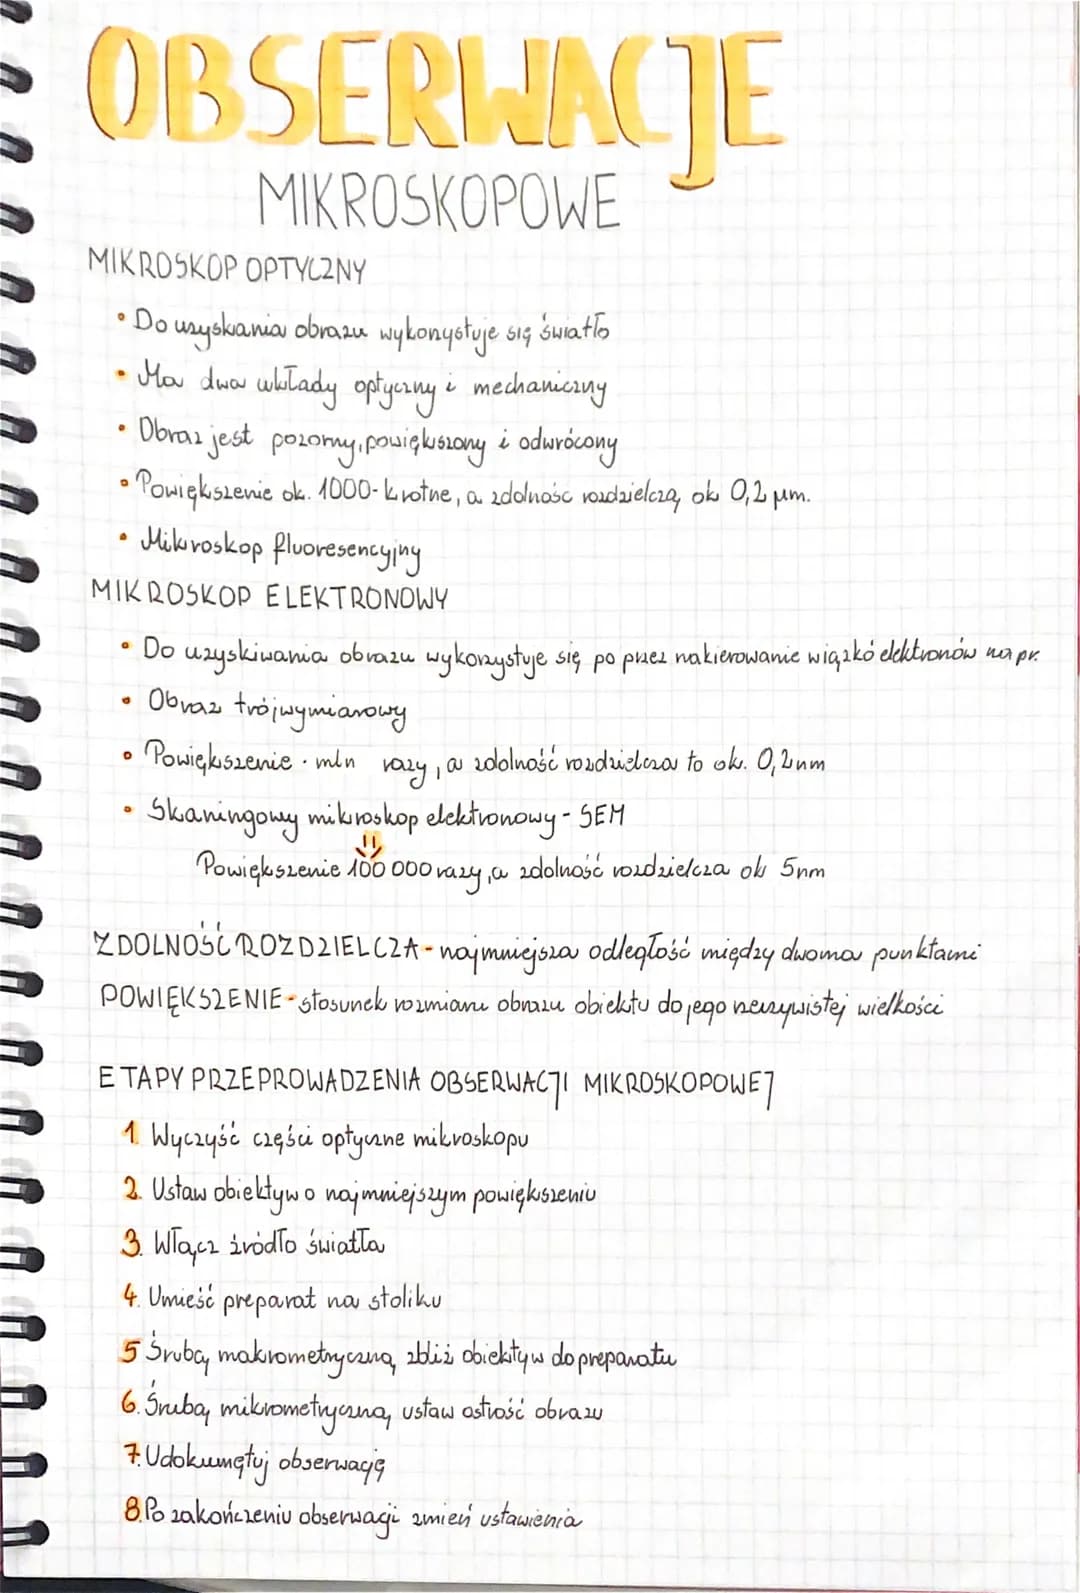 OBSERWACJE
MIKROSKOPOWE
MIKROSKOP OPTYCZNY
• Do uzyskania obrazu wykorzystuje się światło
• Ma dwa układy optyczny i mechaniczny
• Obraz jest pozorny, powiększony i odwrócony
• Powiększenie ok. 1000-krotne, a zdolność rozdzielczą ok 0,2 µm.
• Mikroskop fluoresencyjny
MIKROSKOP ELEKTRONOWY
• Do uzyskiwania obrazu wykorzystuje się po przez nakierowanie wiązkó elektronów na pr.
• Obraz trójwymiarowy
• Powiększenie · mln razy, a zdolność rozdzielcza to ok. 0,2nm
• Skaningowy mikroskop elektronowy - SEM
Powiększenie 100 000 razy, a zdolność rozdzielcza ok 5nm
ZDOLNOŚĆ ROZDZIELCZA - najmniejsza odległość między dwoma punktami
POWIĘKSZENIE - stosunek rozmiaru obrazu obiektu do jego rzeczywistej wielkości
ETAPY PRZEPROWADZENIA OBSERWACJI MIKROSKOPOWEJ
1. Wyczyść części optyczne mikroskopu
2. Ustaw obiektyw o najmniejszym powiększeniu
3. Włącz źródło światła
4. Umieść preparat na stoliku
5 Śrubą makrometryczną zbliż obiektyw do preparatu
6. Śrubą mikrometryczną ustaw ostrość obrazu
7. Udokumętuj obserwację
8. Po zakończeniu obserwacji zmień ustawienia